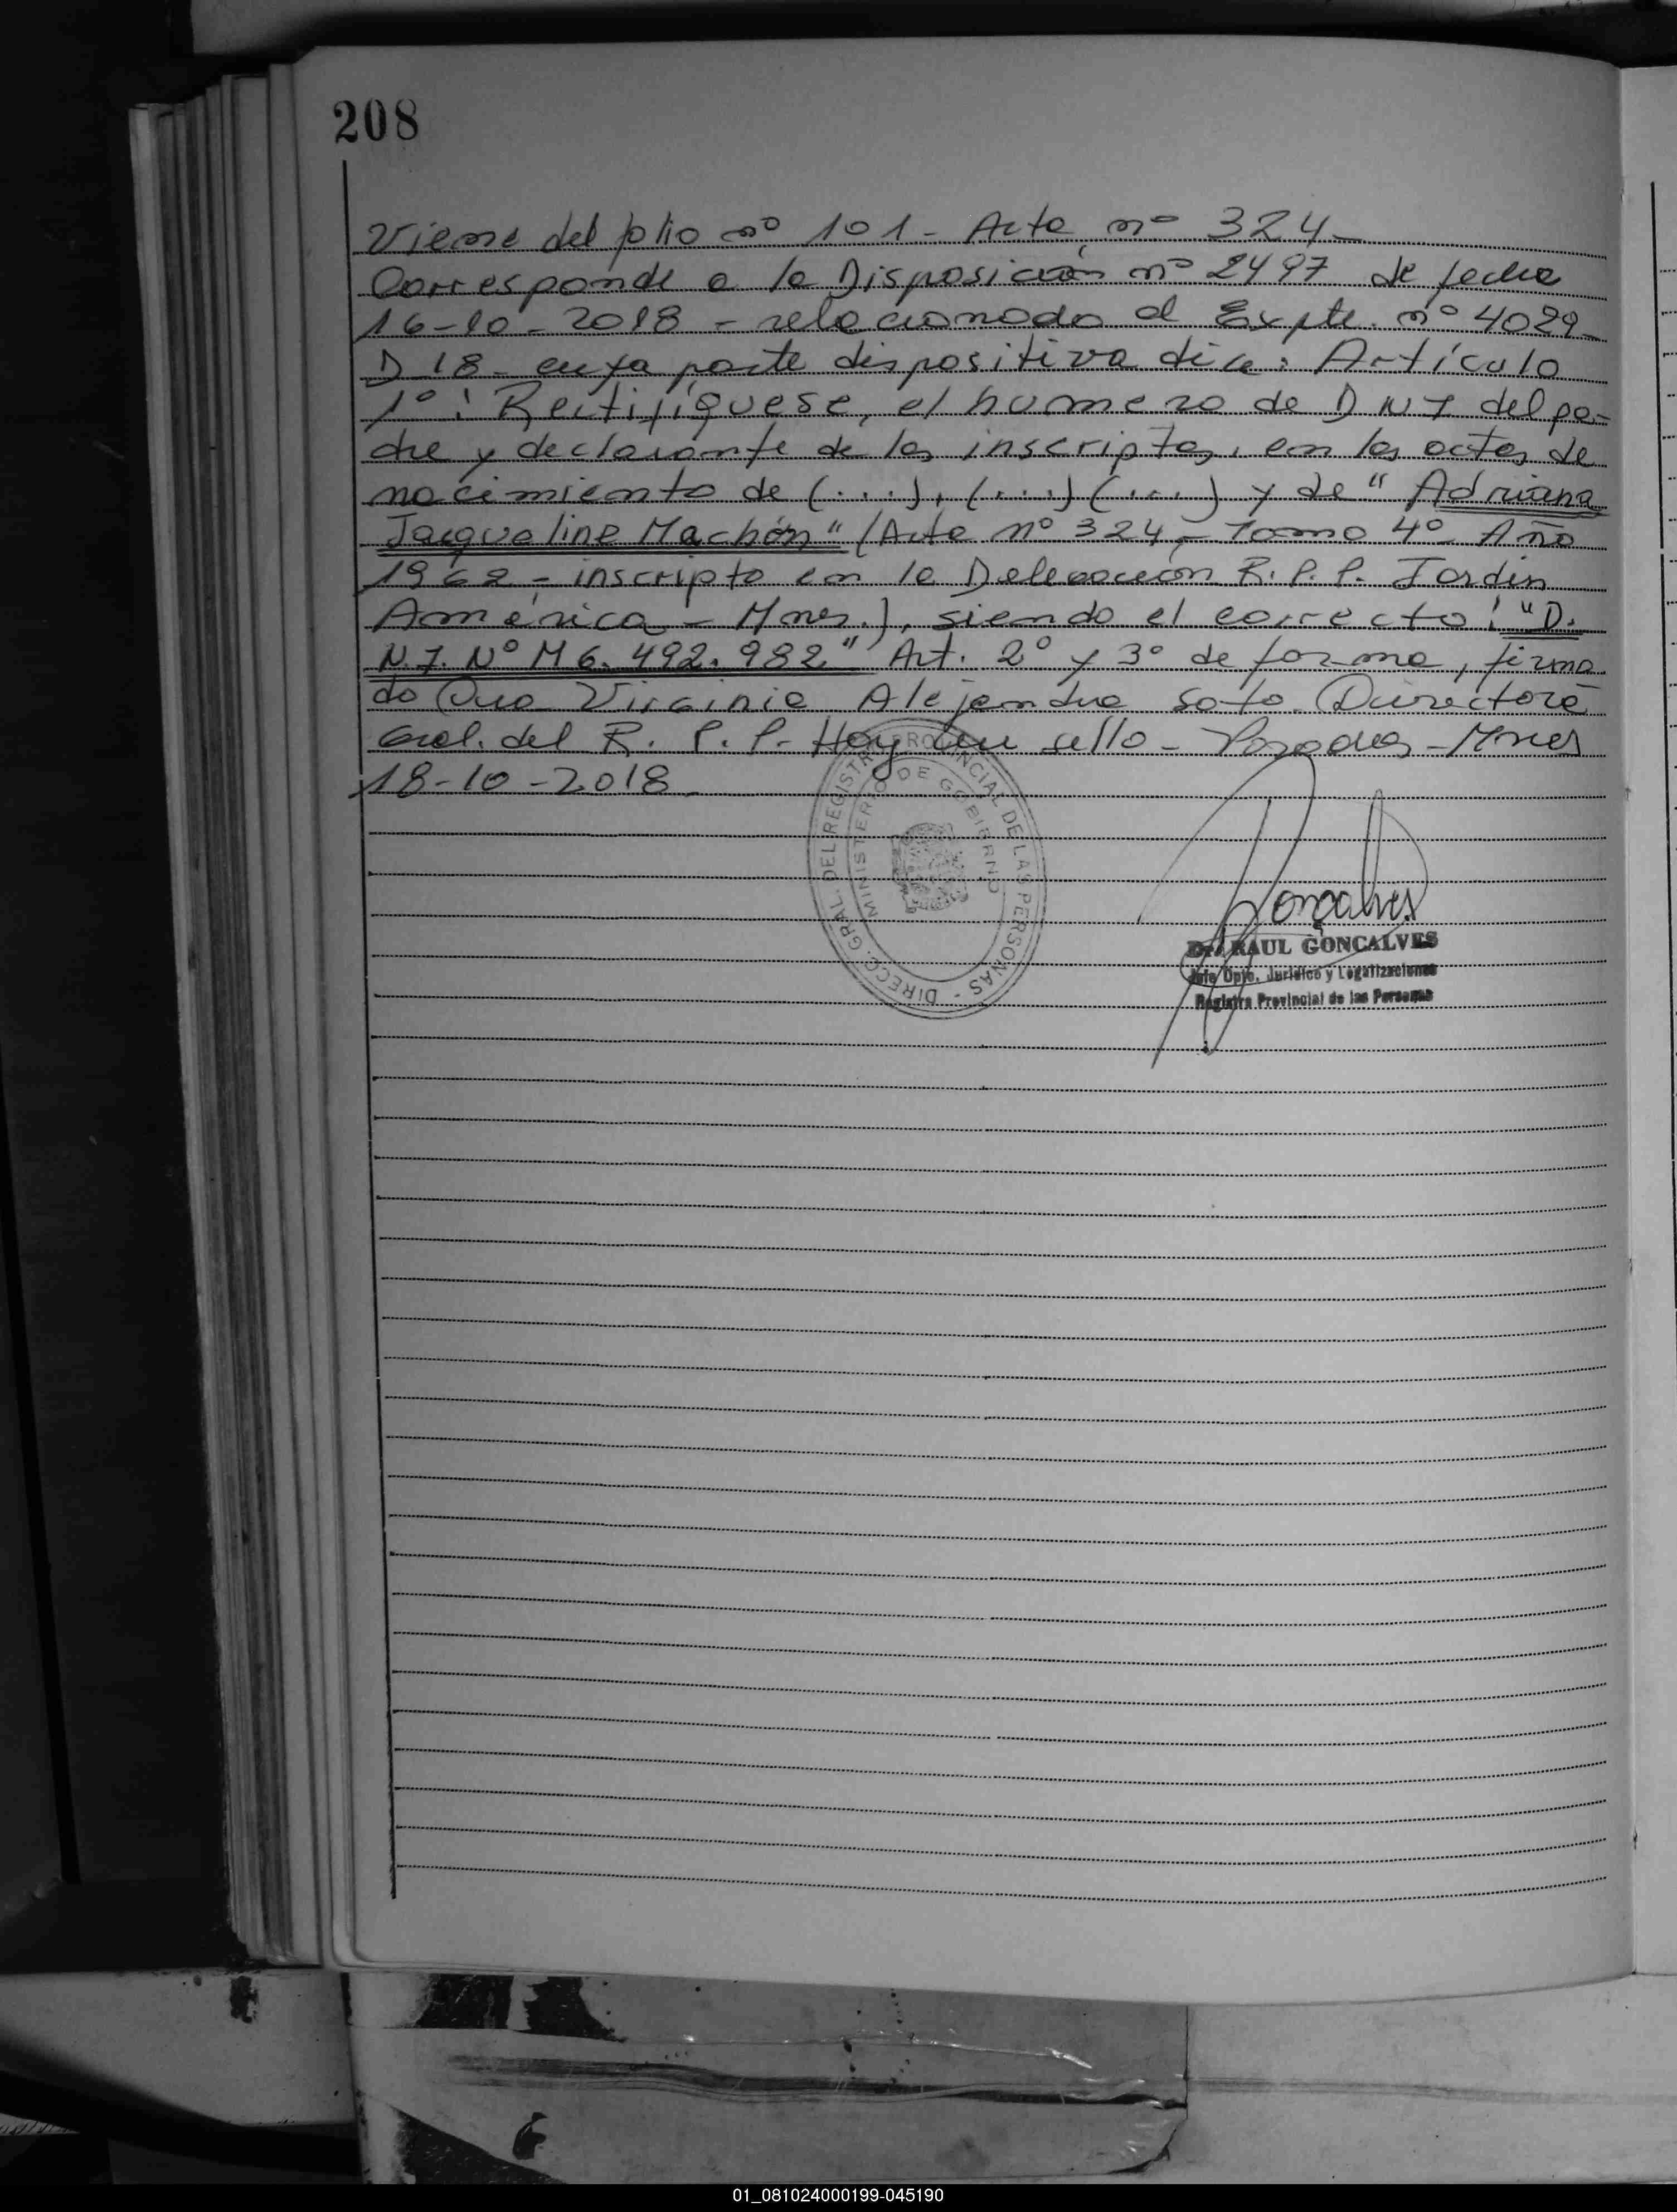 208
Viene del folio nº 101 - Acta nº 324 -
Corresponde a la Disposición nº 2497 de fecha
16-10-2018 - relacionado al Expte. nº 4029-
D 18 - cuya parte dispositiva dice: Artículo
1º: Rectifíquese, el número de D N I del pa-
dre y declarante de los inscriptos, en las actas de
nacimiento de (....), (....) (....) y de "Adriana
Jacqueline Machón" (Acta nº 324 - Tomo 4º - Año
1962 - inscripto en la Delegación R. P. P. Jardin
América - Mnes.), siendo el correcto: "D.
N. I. Nº M 6. 492. 982" Art. 2º y 3º de forma, firma
do Dra Virginia Alejandra Soto. Directora
Gral. del R. P. P. Hay un sello - Posadas - Mnes
18-10-2018.
DIRECC. GRAL. DEL REGISTRO PROVINCIAL DE LAS PERSONAS -
MINISTERIO DE GOBIERNO
Gonçalves
Dr. RAUL GONCALVES
Jefe Dpto. Jurídico y Legalizaciones
Registro Provincial de las Personas
01_081024000199-045190